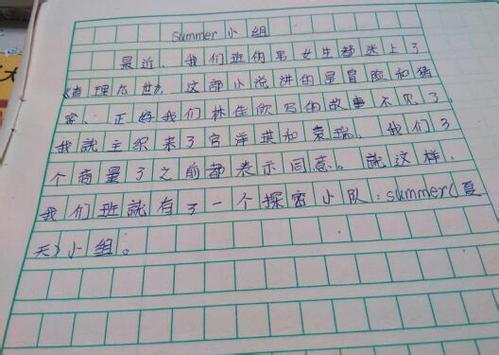 summer小组
最近,我们班的男女生都迷上了
《查理九世》,这部小说讲的是冒险和猜
密,正好我们林佳欣写的故事不见了
我就主织来了宫洋琪和袁瑞,我们3
个商量了之前都表示同意。就这样,
我们班就有了一个探密小队:summer(夏
天)小组。